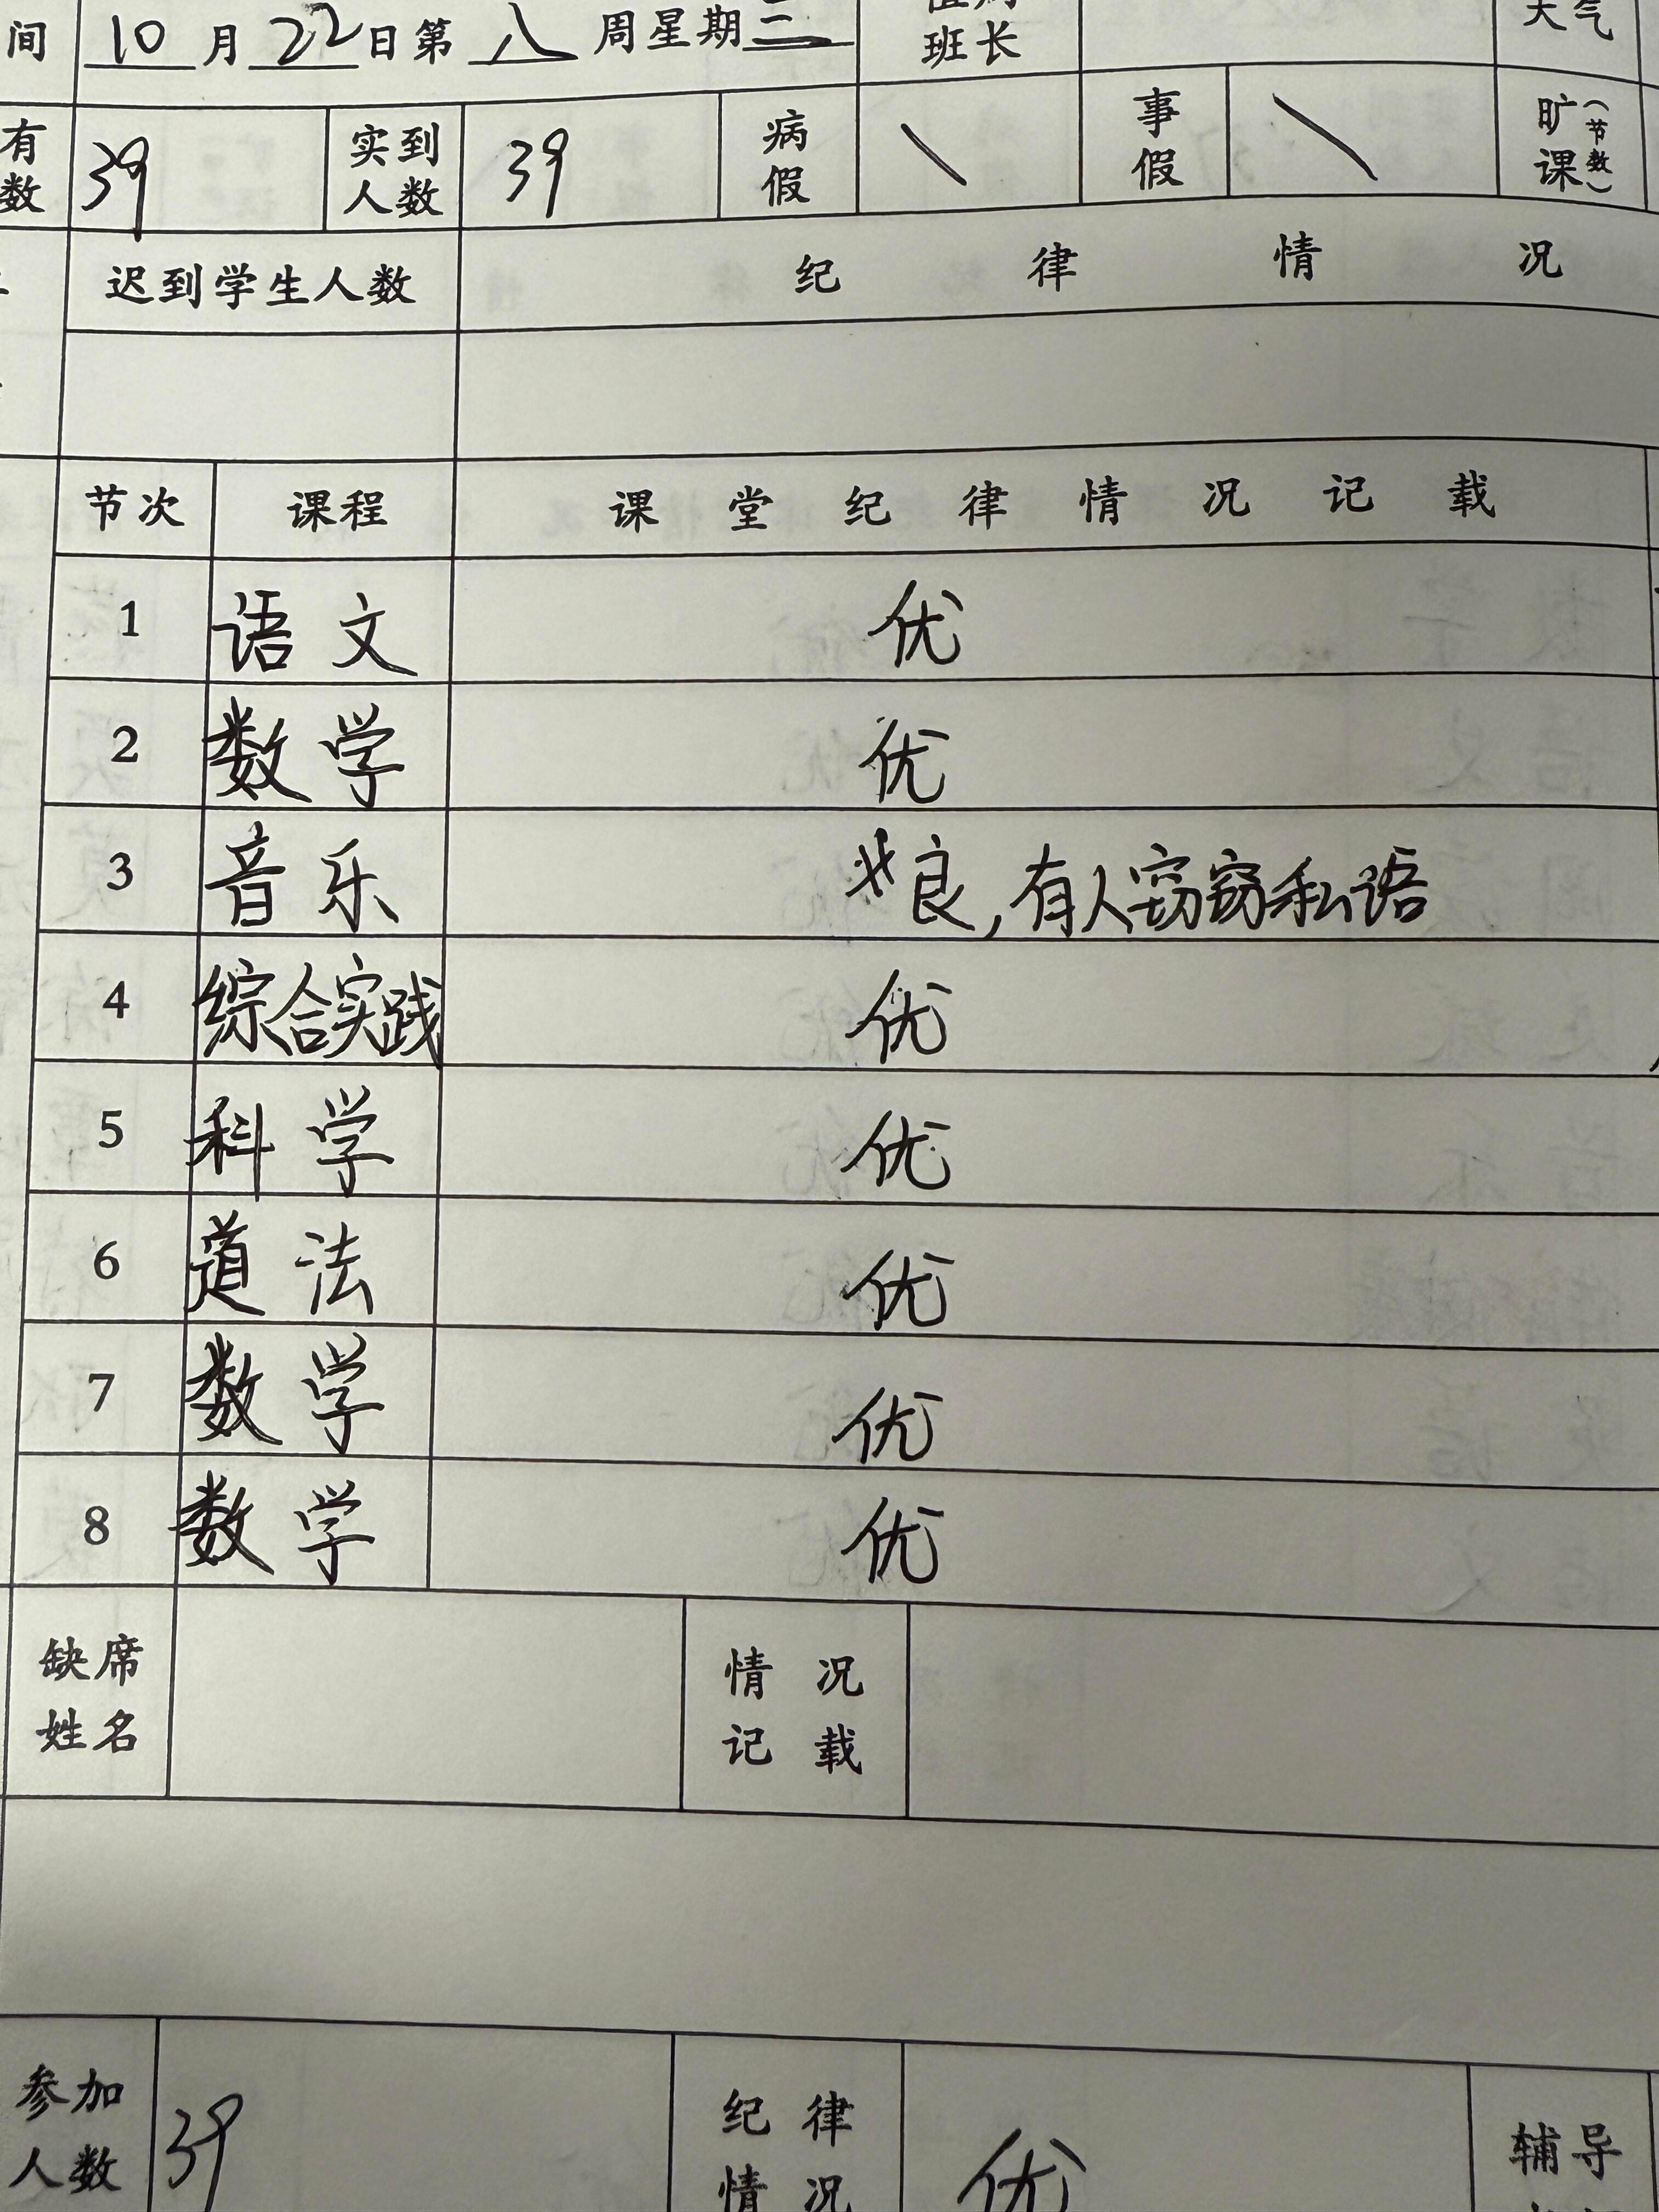 间 10月22日第八周星期三 班长 天气
有数 39 实到人数 39 病假 \ 事假 \ 旷课(节数)
迟到学生人数 纪律情况
节次 课程 课堂纪律情况记载
1 语文 优
2 数学 优
3 音乐 良,有人窃窃私语
4 综合实践 优
5 科学 优
6 道法 优
7 数学 优
8 数学 优
缺席姓名 情况记载
参加人数 39 纪律情况 优 辅导